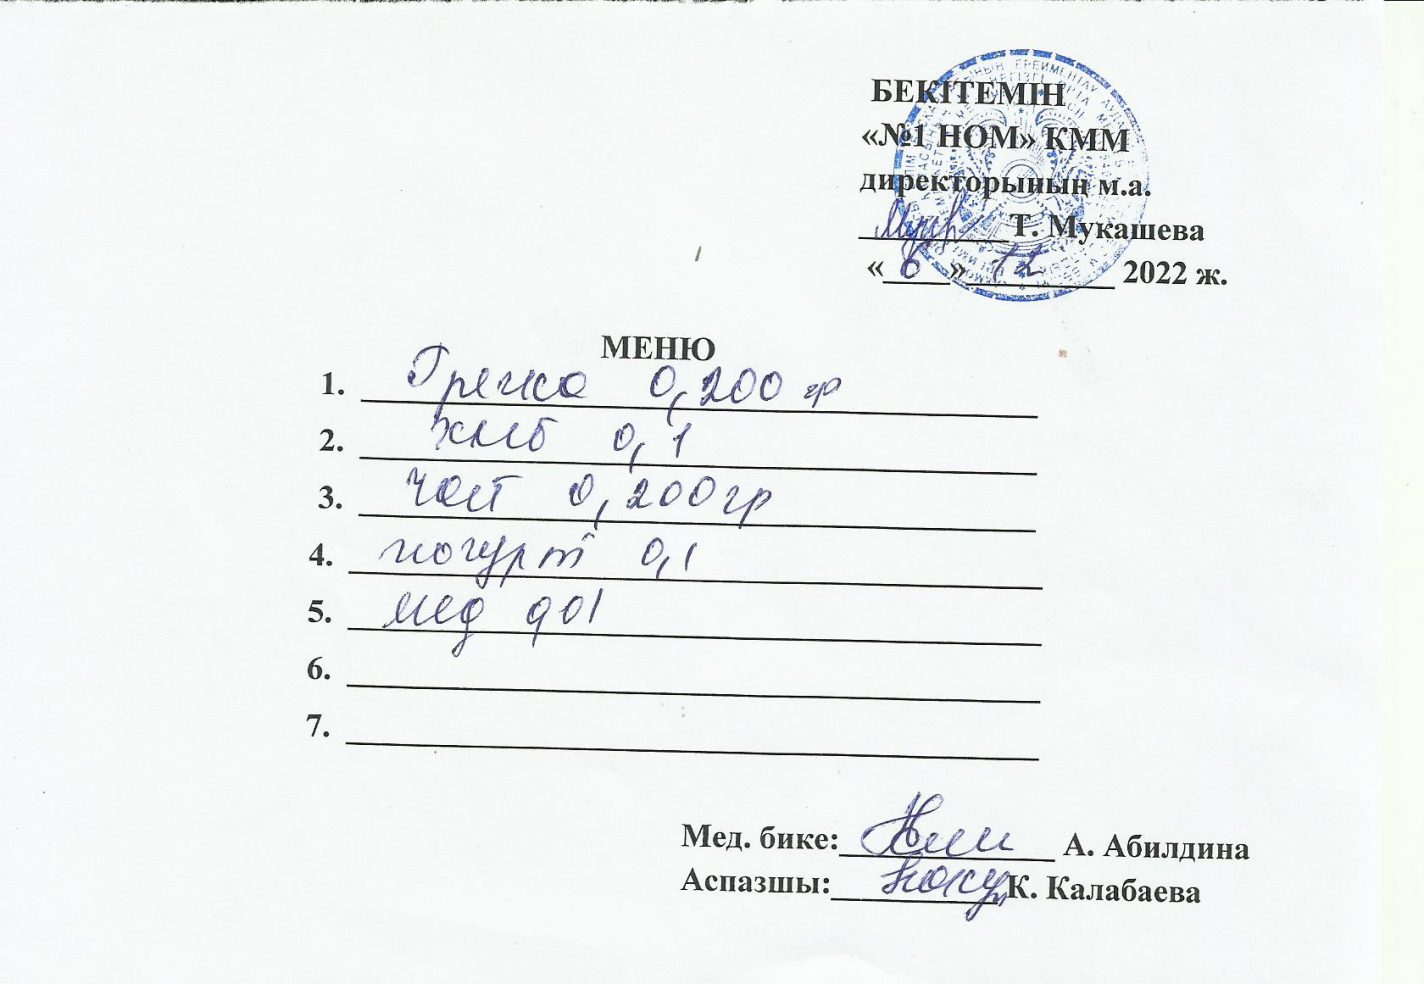 БЕКІТЕМІН
«№1 НОМ» КММ
директорының м.а.
Т. Мукашева
« 6 » 12 2022 ж.
МЕНЮ
1. Гречка 0,200 гр
2. Хлеб 0,1
3. Чай 0,200 гр
4. йогурт 0,1
5. мед 001
6.
7.
Мед. бике: А. Абилдина
Аспазшы: К. Калабаева